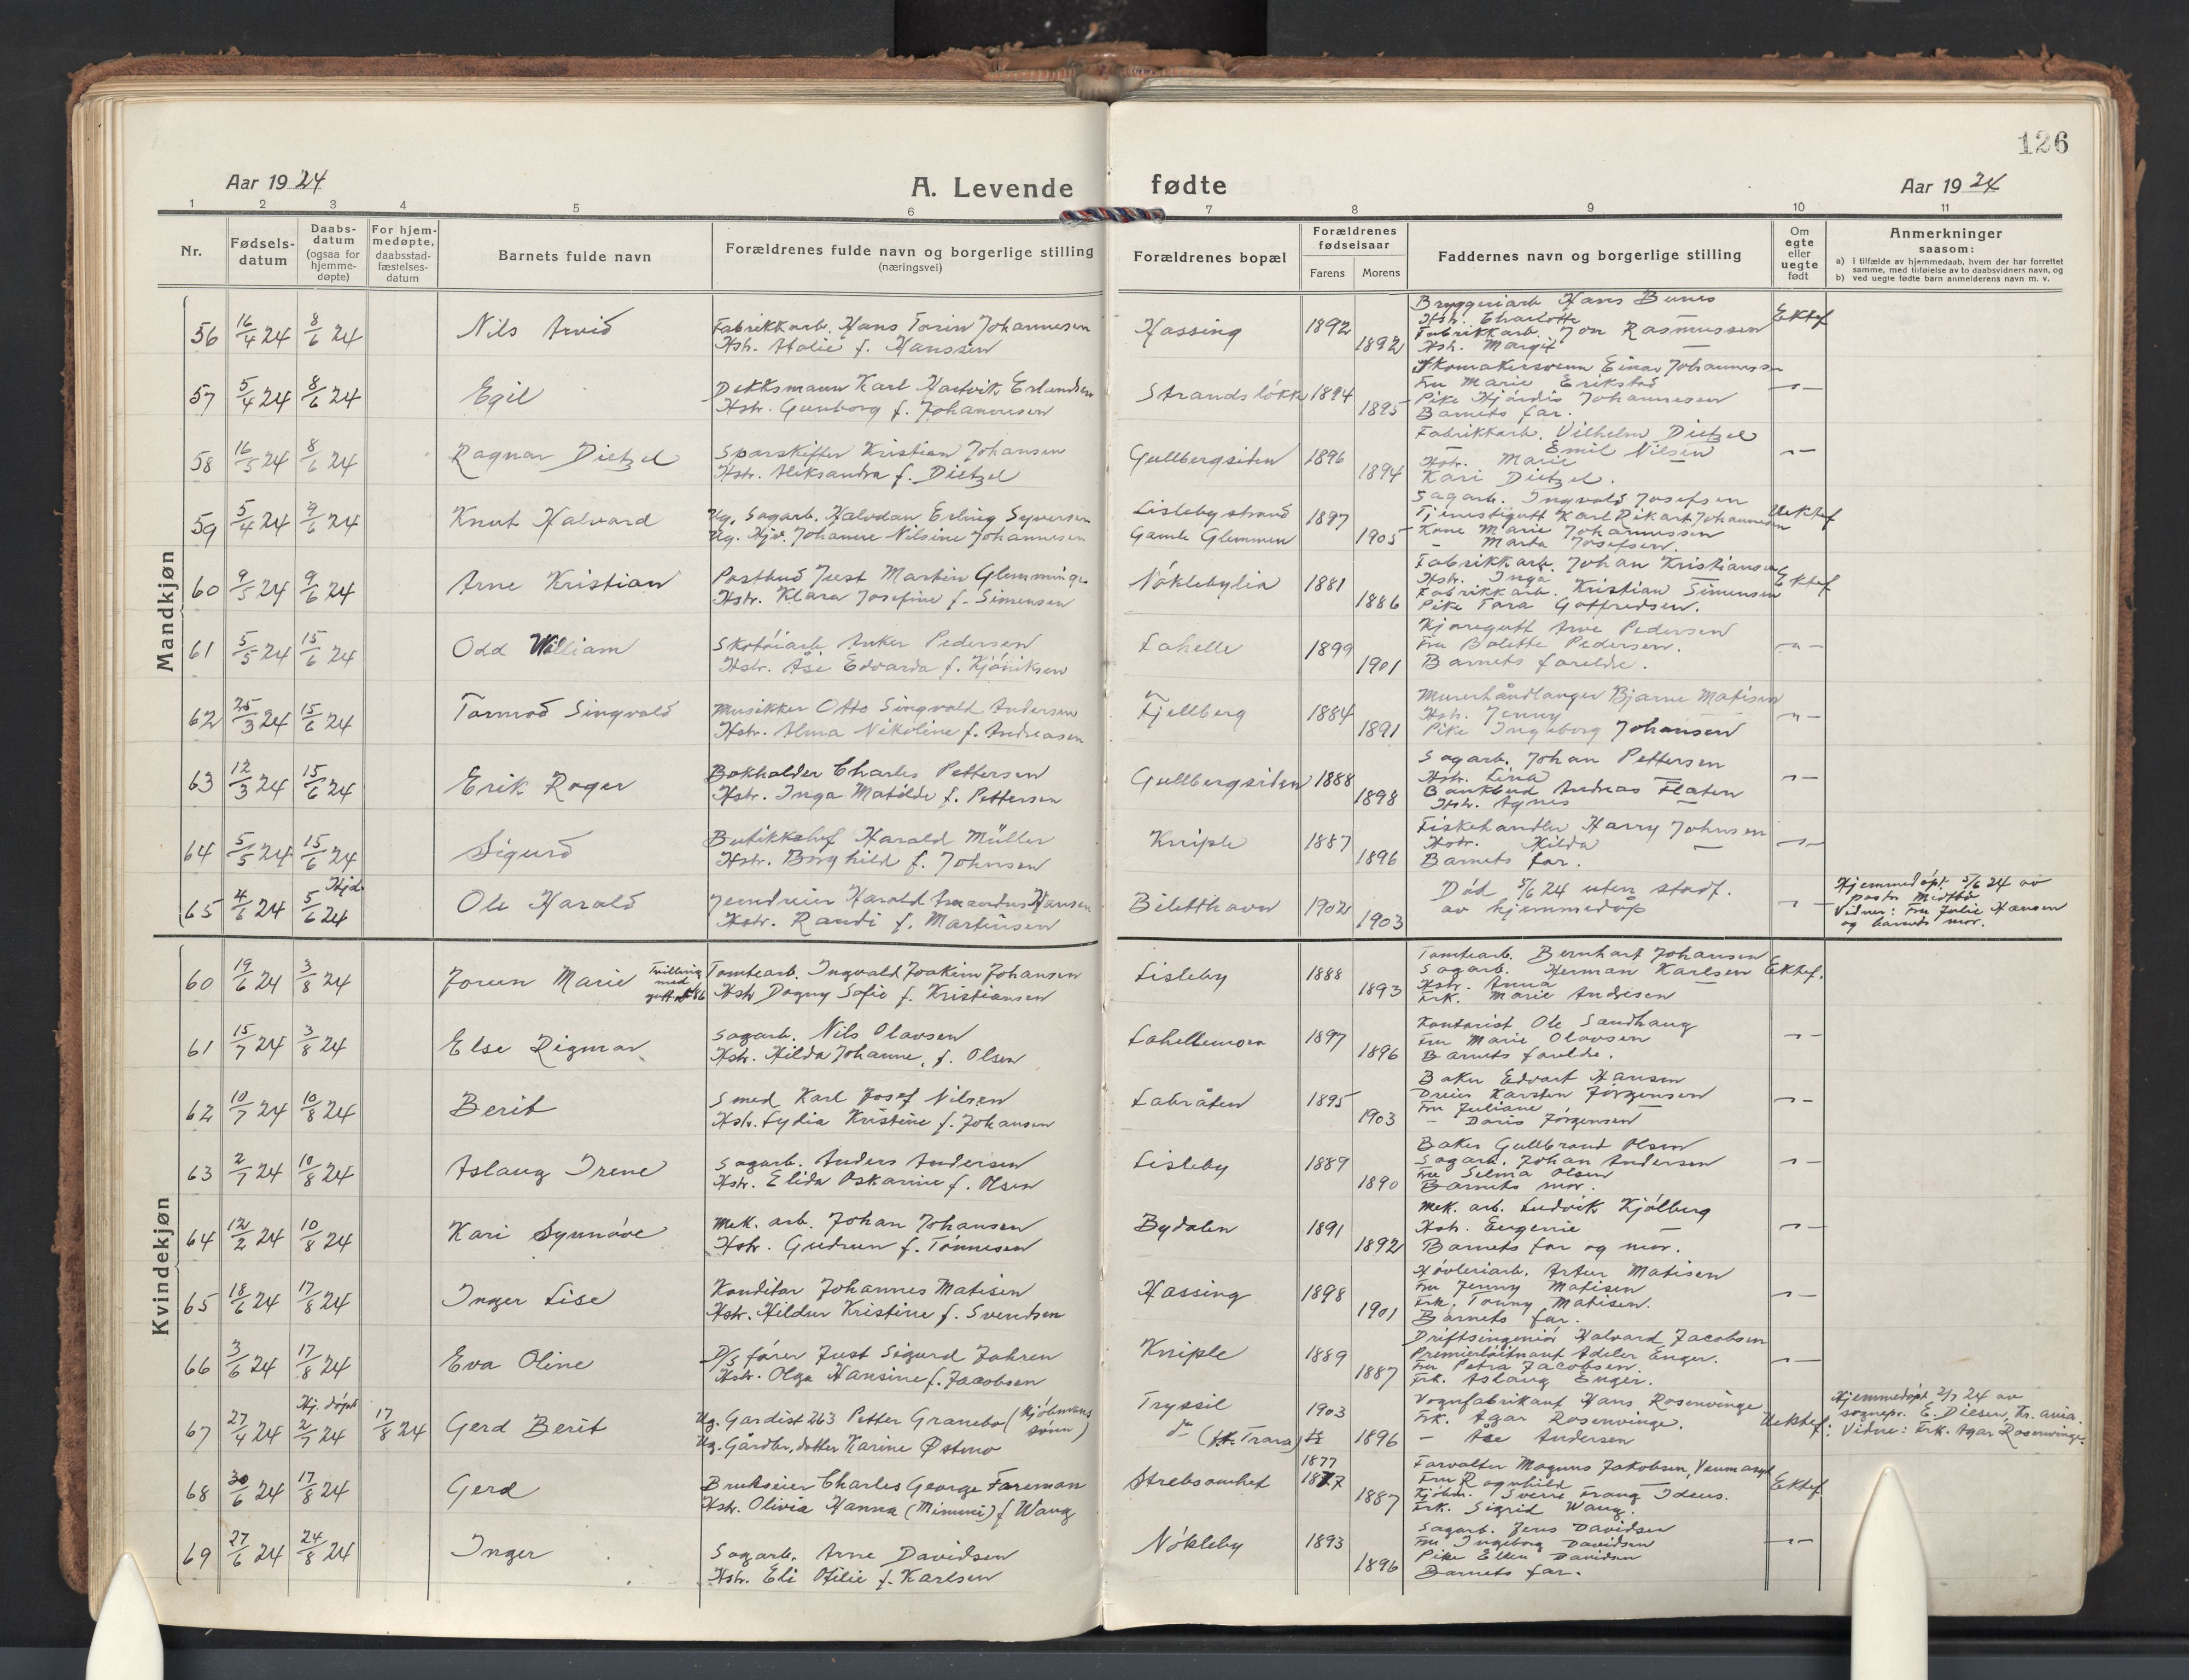 126
Aar 1924
A. Levende fødte
Aar 1924
1 2 3 4 5 6 7 8 9 10 11
Nr.
Fødsels-
datum
Daabs-
datum
(ogsaa for
hjemme-
døpte)
For hjem-
medøpte,
daabsstad-
fæstelses-
datum
Barnets fulde navn
Forældrenes fulde navn og borgerlige stilling
(næringsvei)
Forældrenes bopæl
Forældrenes
fødselsaar
Farens Morens
Faddernes navn og borgerlige stilling
Om
egte
eller
uegte
født
Anmerkninger
saasom:
a) i tilfælde av hjemmedaab, hvem der har forrettet
samme, med tilføielse av to daabsvidners navn, og
b) ved uegte fødte barn anmelderens navn m. v.
Mandkjøn
56 16/4 24 8/6 24 Nils Arvid
Fabrikkarb. Hans Torin Johannesen
Hstr. Atalie f. Hanssen
Hassing 1892 1892
Bryggeriarb Hans Bunes
Hstr. Charlotte —
Fabrikkarb. Jon Rasmussen
Hst. Margit —
Ektef
57 5/4 24 8/6 24 Egil
Dekksmann Karl Hartvik Erlandsen
Hstr. Gunborg f. Johannesen
Strandsløkk 1894 1895
Skomakersvenn Einar Johannessen
Fru Marie Erikstad
Pike Hjørdis Johannesen
Barnets far.
—"—
58 16/5 24 8/6 24 Ragnar Dietzel
Sporskifter Kristian Johansen
Hstr. Aleksandra f. Dietzel
Gullbergsiden 1896 1894
Fabrikkarb. Vilhelm Dietzel
— Emil Nilsen
Hstr. Marie —
Kari Dietzel.
—"—
59 5/4 24 9/6 24 Knut Halvard
Ug. Sagarb. Halvdan Erling Syversen
Ug. Hjv. Johanne Nilsine Johannesen
Lisleby strand
Gamle Glemmen
1897 1905
Sagarb. Ingvald Josefsen
Tjenestegutt Karl Rikart Johannesen
Kone Marie Johannessen
- Marta Josefsen.
Uektef
60 9/5 24 9/6 24 Arne Kristian
Postbud Just Martin Glemminge
Hstr. Klara Josefine f. Simensen
Nøklebylia 1881 1886
Fabrikkarb. Johan Kristiansen
Hstr. Inga —
Fabrikkarb. Kristian Simensen
Pike Tora Gotfredsen.
Ektef
61 5/5 24 15/6 24 Odd William
Skotøiarb Anker Pedersen
Hstr. Åse Edvarda f. Kjøniksen
Lahelle 1899 1901
Kjøregutt Arve Pedersen
Fru Bolette Pedersen.
Barnets forelde.
—"—
62 25/3 24 15/6 24 Tormod Singvald
Musikker Otto Singvald Andersen
Hstr. Alma Nikoline f. Andreasen
Fjellberg 1884 1891
Murerhåndlanger Bjarne Matisen
Hstr. Jenny —
Pike Ingeborg Johansen
—"—
63 12/3 24 15/6 24 Erik Roger
Bokholder Charles Pettersen
Hstr. Inga Matilde f. Pettersen
Gullbergsiden 1888 1898
Sagarb. Johan Pettersen
Hstr. Lina —
Bankbud Andreas Flaten
Hstr. Agnes —
—"—
64 5/5 24 15/6 24 Sigurd
Butikkshef Harald Müller
Hstr. Borghild f. Johnsen
Kniple 1887 1896
Fiskehandler Harry Johnsen
Hstr. Hilda —
Barnets far.
—"—
65 4/6 24 Hjd. 5/6 24 Ole Harald
Jerndreier Harald Amandus Hansen
Hstr. Randi f. Martinsen
Biletthavn 1902 1903
Død 5/6 24 uten stadf.
av hjemmedåp
—"—
Hjemmedøpt 5/6 24 av
pastor Medbø
Vidner: Fru Julie Hansen
og barnets mor.
Kvindekjøn
60 19/6 24 3/8 24 Jorun Marie
Tvilling
med
gutt nr 86
Tomtearb. Ingvald Joakim Johansen
Hstr Dagny Sofie f. Kristiansen
Lisleby 1888 1893
Tomtearb. Bernhart Johansen
Sagarb. Herman Karlsen
Hstr. Anna —
Frk. Marie Andresen
Ektef.
61 15/7 24 3/8 24 Else Rigmor
Sagarb. Nils Olavsen
Hstr. Hilda Johanne, f. Olsen
Lahellemoen 1897 1896
Kontorist Ole Sandhaug
Fru Marie Olavsen
Barnets forelde.
—"—
62 10/7 24 10/8 24 Berit
Smed Karl Josef Nilsen
Hstr. Lydia Kristine f. Johansen
Labråten 1895 1903
Baker Edvart Hansen
Dreier Karsten Jørgensen
Fru Juliane —
- Doris Jørgensen
—"—
63 2/7 24 10/8 24 Aslaug Irene
Sagarb. Anders Andersen
Hstr. Elida Oskarine f. Olsen
Lisleby 1889 1890
Baker Gullbrand Olsen
Sagarb. Johan Andersen
Fru Selma Olsen
Barnets mor.
—"—
64 12/2 24 10/8 24 Kari Synnøve
Mek. arb. Johan Johansen
Hstr. Gudrun f. Tønnesen
Bydalen 1891 1892
Mek. arb. Ludvik Kjølberg
Hstr. Eugenie —
Barnets far og mor.
—"—
65 18/6 24 17/8 24 Inger Lise
Konditor Johannes Matisen
Hstr. Hildur Kristine f. Svendsen
Hassing 1898 1901
Høvleriarb. Artur Matisen
Fru Jenny Matisen
Frk. Tonny Matisen.
Barnets far.
—"—
66 3/6 24 17/8 24 Eva Oline
D/S fører Just Sigurd Johren
Hstr. Olga Hansine f. Jacobsen
Kniple 1889 1887
Driftsingeniør Halvard Jacobsen
Premierløitnant Adeler Enger.
Fru Petra Jacobsen.
Frk. Aslaug Enger.
—"—
67 27/4 24 Hj. døpt 2/7 24 17/8 24 Gerd Berit
Ug. Gardist 263 Petter Granebo (Kjøbmanns sønn)
Ug. Gårdbr. datter Karine Østmo
Tryssil
do (Trara)
1903 1896
Vognfabrikant Hans Rosenvinge
Frk. Agar Rosenvinge.
— Åse Andersen
Uektef.
Hjemmedøpt 2/7 24 av
sognepr. E. Diesen, Kr.ania.
Vidne: Frk. Agar Rosenvinge.
68 30/6 24 17/8 24 Gerd
Brukseier Charles George Foreman
Hstr. Olivia Hanna (Mimmi) f Wang
Strebsomhet 1877 1877 1887
Forvalter Magnus Jakobsen, Veum asyl
Fru Ragnhild —
Kjøbm. Sverre Frang Ideus.
Frk. Sigrid Wang.
Ektef.
69 27/6 24 24/8 24 Inger
Sagarb. Arne Davidsen
Hstr. Eli Otilie f. Karlsen
Nøkleby 1893 1896
Sagarb. Jens Davidsen
Fru Ingeborg Davidsen
Pike Ellen Davidsen
Barnets far.
—"—